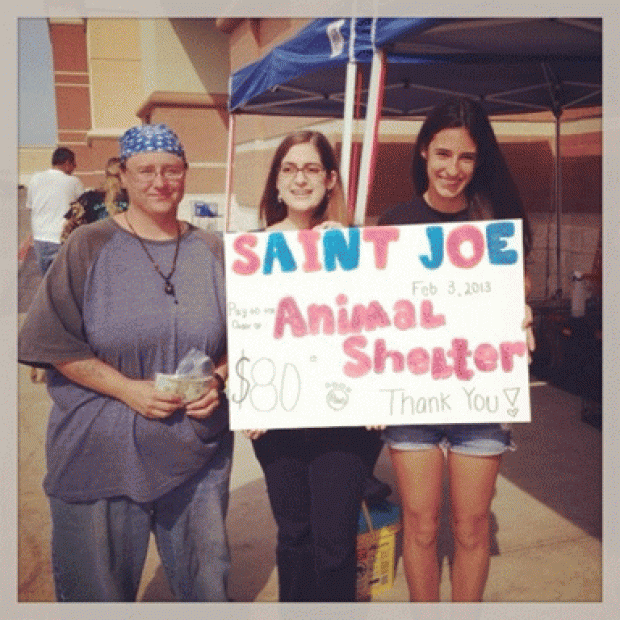 SAINT JOE
Feb 3, 2013
Pay to the
Order of
Animal
Shelter
$80
Thank You!